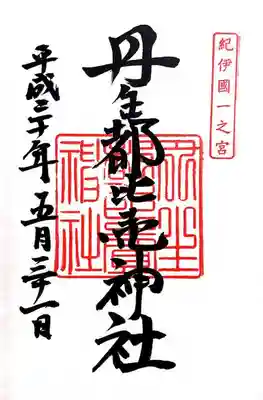 紀伊國一之宮
丹生都比売神社
平成二十年 五月二十一日